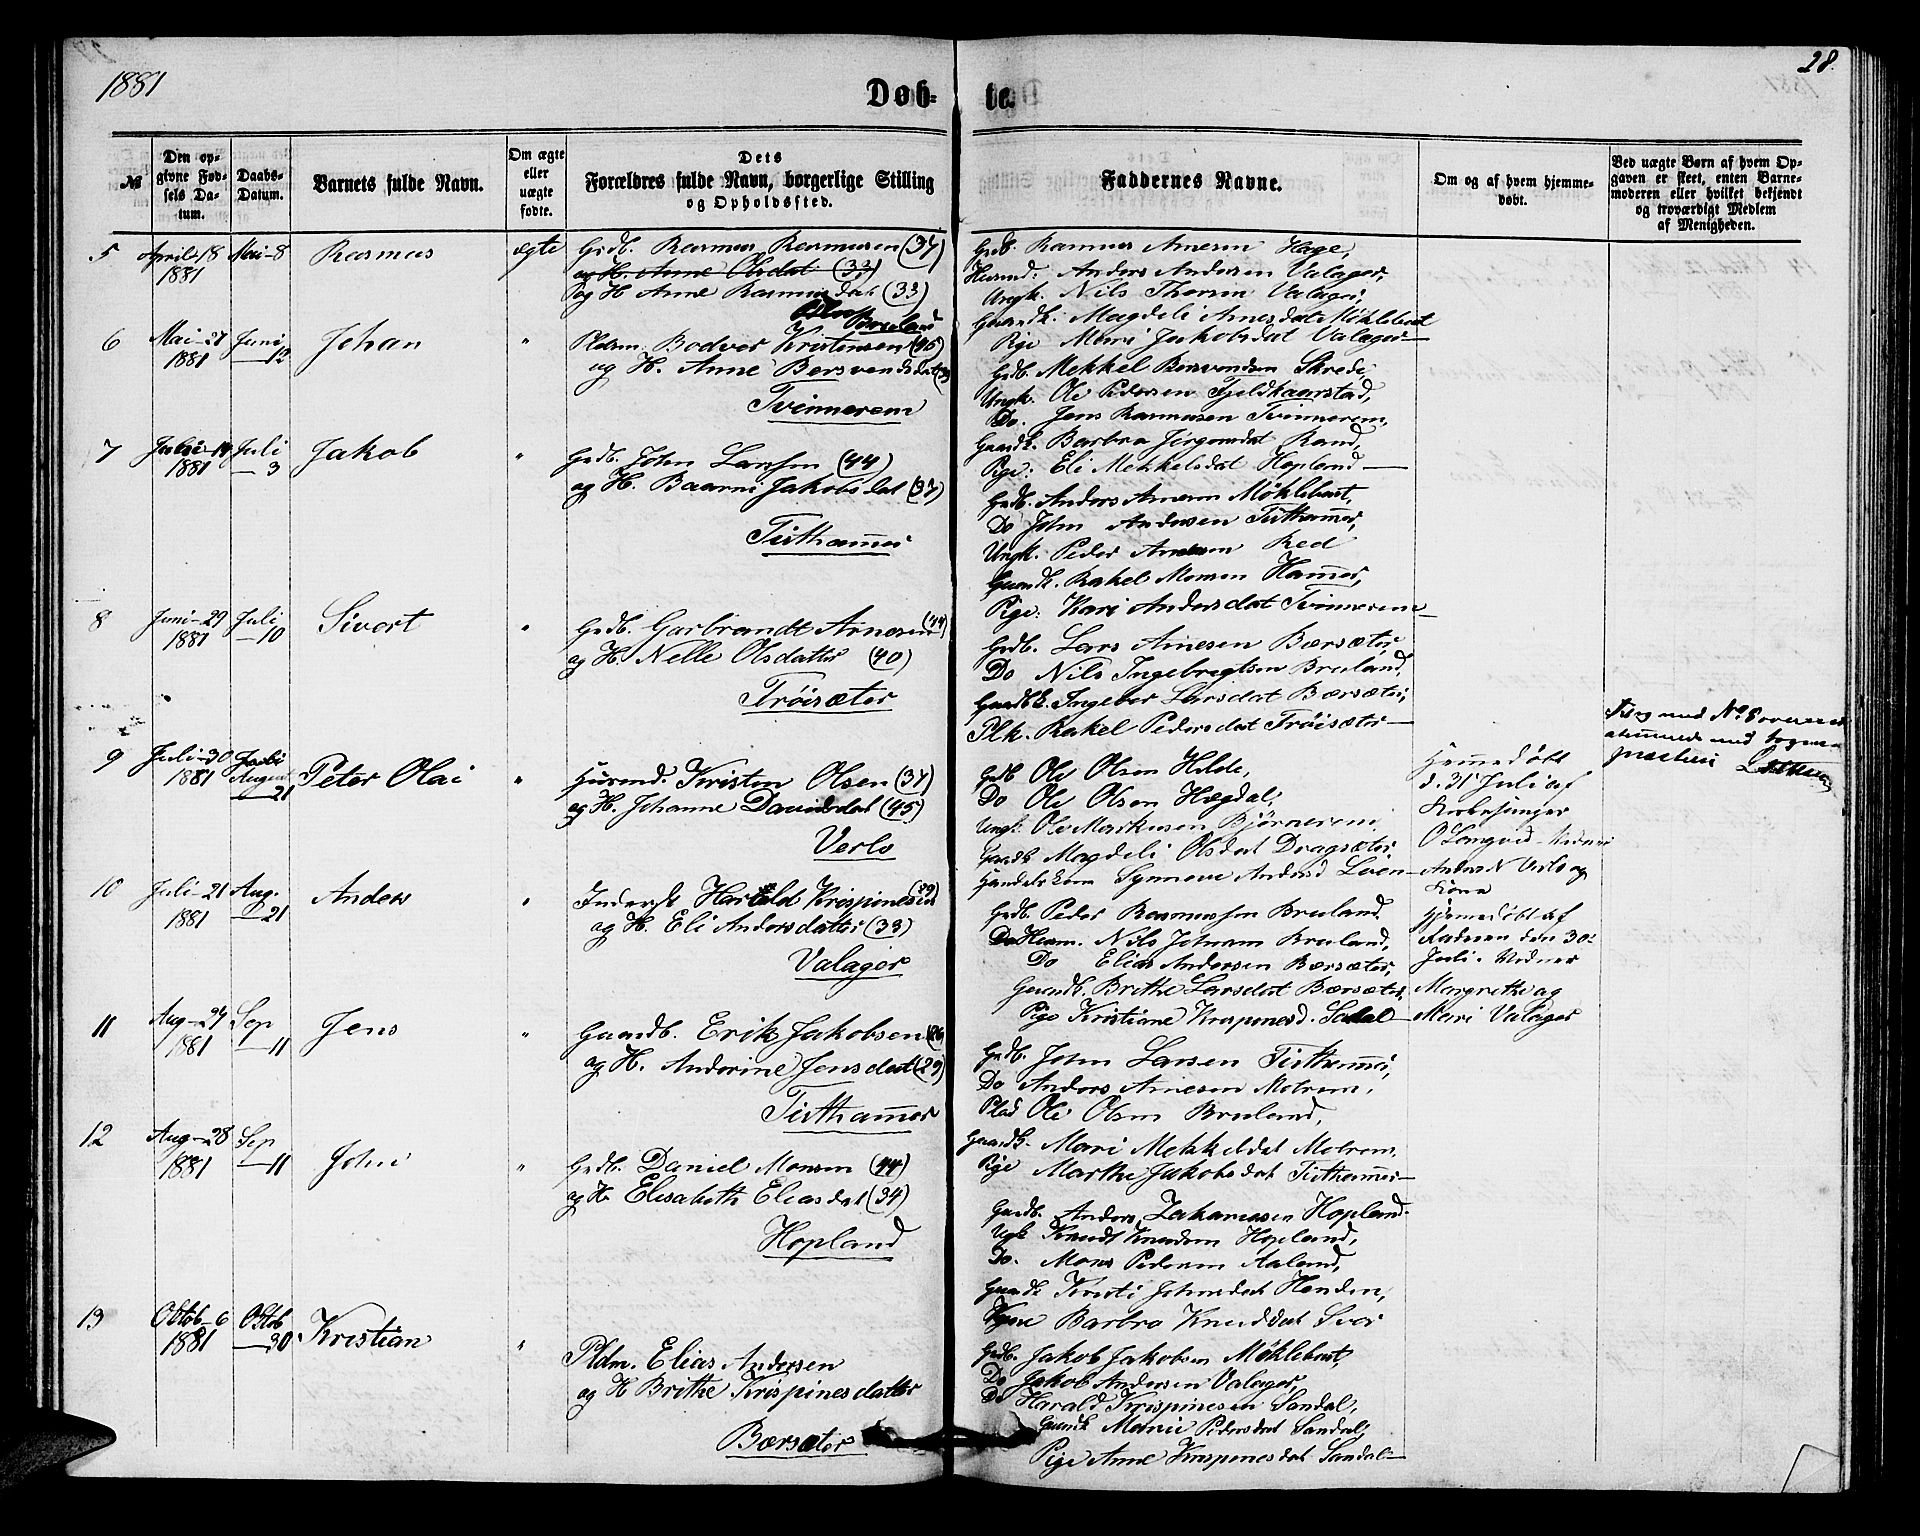 1881
Døb-
te.
28.
№
Den op-
givne Fød-
sels Da-
tum.
Daabs-
Datum.
Barnets fulde Navn.
Om ægte
eller
uægte
fødte.
Dets
Forældres fulde Navn, borgerlige Stilling
og Opholdssted.
Faddernes Navne.
Om og af hvem hjemme-
døbt.
Ved uægte Børn af hvem Op-
gaven er skeet, enten Barne-
moderen eller hvilket bekjendt
og troværdigt Medlem
af Menigheden.
5
April 18
1881
Mai-8
Rasmus
ægte
Grdb. Rasmus Rasmusen (37)
og H. Anne Olsdat (33)
og H Anne Rasmusdat (33)
Bruland
Grdb. Rasmus Arnesen Hage,
Husmd. Anders Andersen Valager,
Ungk. Nils Thorsen Valager,
Gaardk. Magdeli Arnesdat Møklebust
Pige Mari Jakobsdat Valager
6
Mai-27
1881
Juni
12
Johan
"
Pldsm. Bodver Kristensen (45)
og H. Anne Bersvendsdat
Tvinnerem
Grdb. Mekkel Bersvendsen Skrede,
Ungk. Ole Pedersen Fjeldkaarstad,
Do. Jens Rasmusen Tvinnerem,
Gaardk. Barbra Jørgensdat Rand,
Pige. Eli Mekkelsdat Hopland
7
1881
Juli
3
Jakob
"
Grdb. John Larssen (44)
og H. Baarni Jakobsdat (37)
Tisthamer
Grdb. Anders Arnesen Møklebust,
Do John Andersen Tisthamer,
Ungk. Peder Arnesen Red
Gaardk. Rakel Monsen Hamer,
Pige. Kari Andersdat Tvinnerem
8
Juni-29
1881
Juli
10
Sivert
"
Grdb. Garbrandt Arnesen (44)
og H. Nelle Olsdatter (40)
Trøisæter
Grdb. Lars Arnesen Bærsæter,
Do Nils Ingebregtsen Bruland,
Gaardbk. Ingebor Larsdat Bærsæter,
Plk. Rakel Pedersdat Trøisæter
9
Juli-30
1881
Juli
August
21
Peter Olai
"
Husmd. Kristen Olsen (37)
og H. Johanne Davidsdat (45)
Verlo
Grdb Ole Olsen Hilde,
Do Ole Olsen Hægdal,
Ungk. Ole Markusen Bjørnerem,
Gaardk Magdeli Olsdat Dragsæter
Handelskone Synneve Andersd Loen
Hjemedøbt
d. 31 Juli af
Kirkesanger
Anders N Verlo og
Kona
til og med No 8 overens
stemmende med bogen
præsten
10
Juli-21
1881
Aug.
21
Anders
"
Inderst Harald Krispinesen (29)
og H. Eli Andersdatter (33)
Valager
Grdb. Peder Rasmussen Bruland.
Do Husm. Nils Johnsen Bruland,
Do Elias Andersen Bærsæter,
Gaardb. Brithe Larsdat Bærsæter,
Pige Kristiane Krispinesd. Sandal
Hjemedøbt af
Faderen den 30
Juli. Vidner
Margrethe og
Mari Valager
11
Aug-24
1881
Sep
11
Jens
"
Gaardb. Erik Jakobsen (26)
og H. Andorine Jensdat (29)
Tisthamer
Grdb. John Larsen Tisthamer,
Do Anders Arnesen Molrem,
Plad Ole Olsen Bruland,
Gaardk. Mari Mekkelsdat Molrem
Pige Marthe Jakobsdat Tisthamer
12
Aug-28
1881
Sep
11
John
"
Grdb. Daniel Monsen (44)
og H Elisabeth Eliasdat (34)
Hopland
Gaardb. Anders Zakariassen Hopland.
Ugk Knudt Knudsen Hopland,
Do. Mons Pedersen Aaland,
Gaardk Kristi Johnsdat Henden,
Kone Barbra Knudsdat Svor
13
Oktob-6
1881
Oktob
30
Kristian
"
Pldm. Elias Andersen
og H Brithe Krispinesdatter
Bærsæter
Grdb. Jakob Jakobsen Møklebust,
Do Jakob Andersen Valager,
Do Harald Krispinesen Sandal,
Gaardk Marie Pedersdat Sandal,
Pige Anne Krispinesdat Sandal